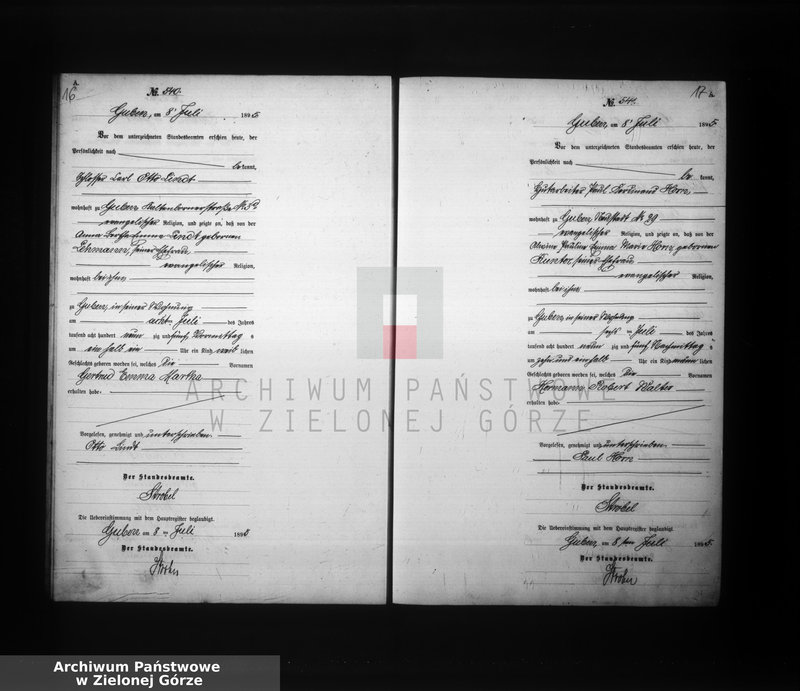 16
A.
№ 540.
Guben, am 8. Juli 1895
Vor dem unterzeichneten Standesbeamten erschien heute, der
Persönlichkeit nach
be kannt,
Schlosser Carl Otto Lindt
wohnhaft zu Guben Kaltenbornerstraße №
evangelischer Religion, und zeigte an, daß von der
Anna Emma Lindt geborenen
Lehmann, seiner Ehefrau
evangelischer Religion,
wohnhaft bei ihm
zu Guben, in seiner Wohnung
am acht Juli des Jahres
tausend acht hundert neun zig und fünf, Vormittag s
um ein halb ein Uhr ein Kind weib lichen
Geschlechts geboren worden sei, welches die Vornamen
Gertrud Emma Martha
erhalten habe
Vorgelesen, genehmigt und unterschrieben.
Otto Lindt
Der Standesbeamte.
Strobel
Die Uebereinstimmung mit dem Hauptregister beglaubigt.
Guben am 8 Juli 1895
Der Standesbeamte.
17
A.
№ 541.
Guben, am 8. Juli 1895
Vor dem unterzeichneten Standesbeamten erschien heute, der
Persönlichkeit nach
be kannt,
Hutarbeiter Paul Ferdinand Horn
wohnhaft zu Guben Neustadt № 39
evangelischer Religion, und zeigte an, daß von der
Pauline Emma Marie Horn geborenen
seiner Ehefrau
evangelischer Religion,
wohnhaft bei ihm
zu Guben, in seiner Wohnung
am sechs Juli des Jahres
tausend acht hundert neun zig und fünf, Nachmittag s
um zehn und einhalb Uhr ein Kind männ lichen
Geschlechts geboren worden sei, welches die Vornamen
Hermann Robert Walter
erhalten habe
Vorgelesen, genehmigt und unterschrieben
Paul Horn
Der Standesbeamte.
Strobel
Die Uebereinstimmung mit dem Hauptregister beglaubigt.
Guben, am 8 Juli 1895.
Der Standesbeamte.
ARCHIWUM PAŃSTWOWE
W ZIELONEJ GÓRZE
Archiwum Państwowe
w Zielonej Górze